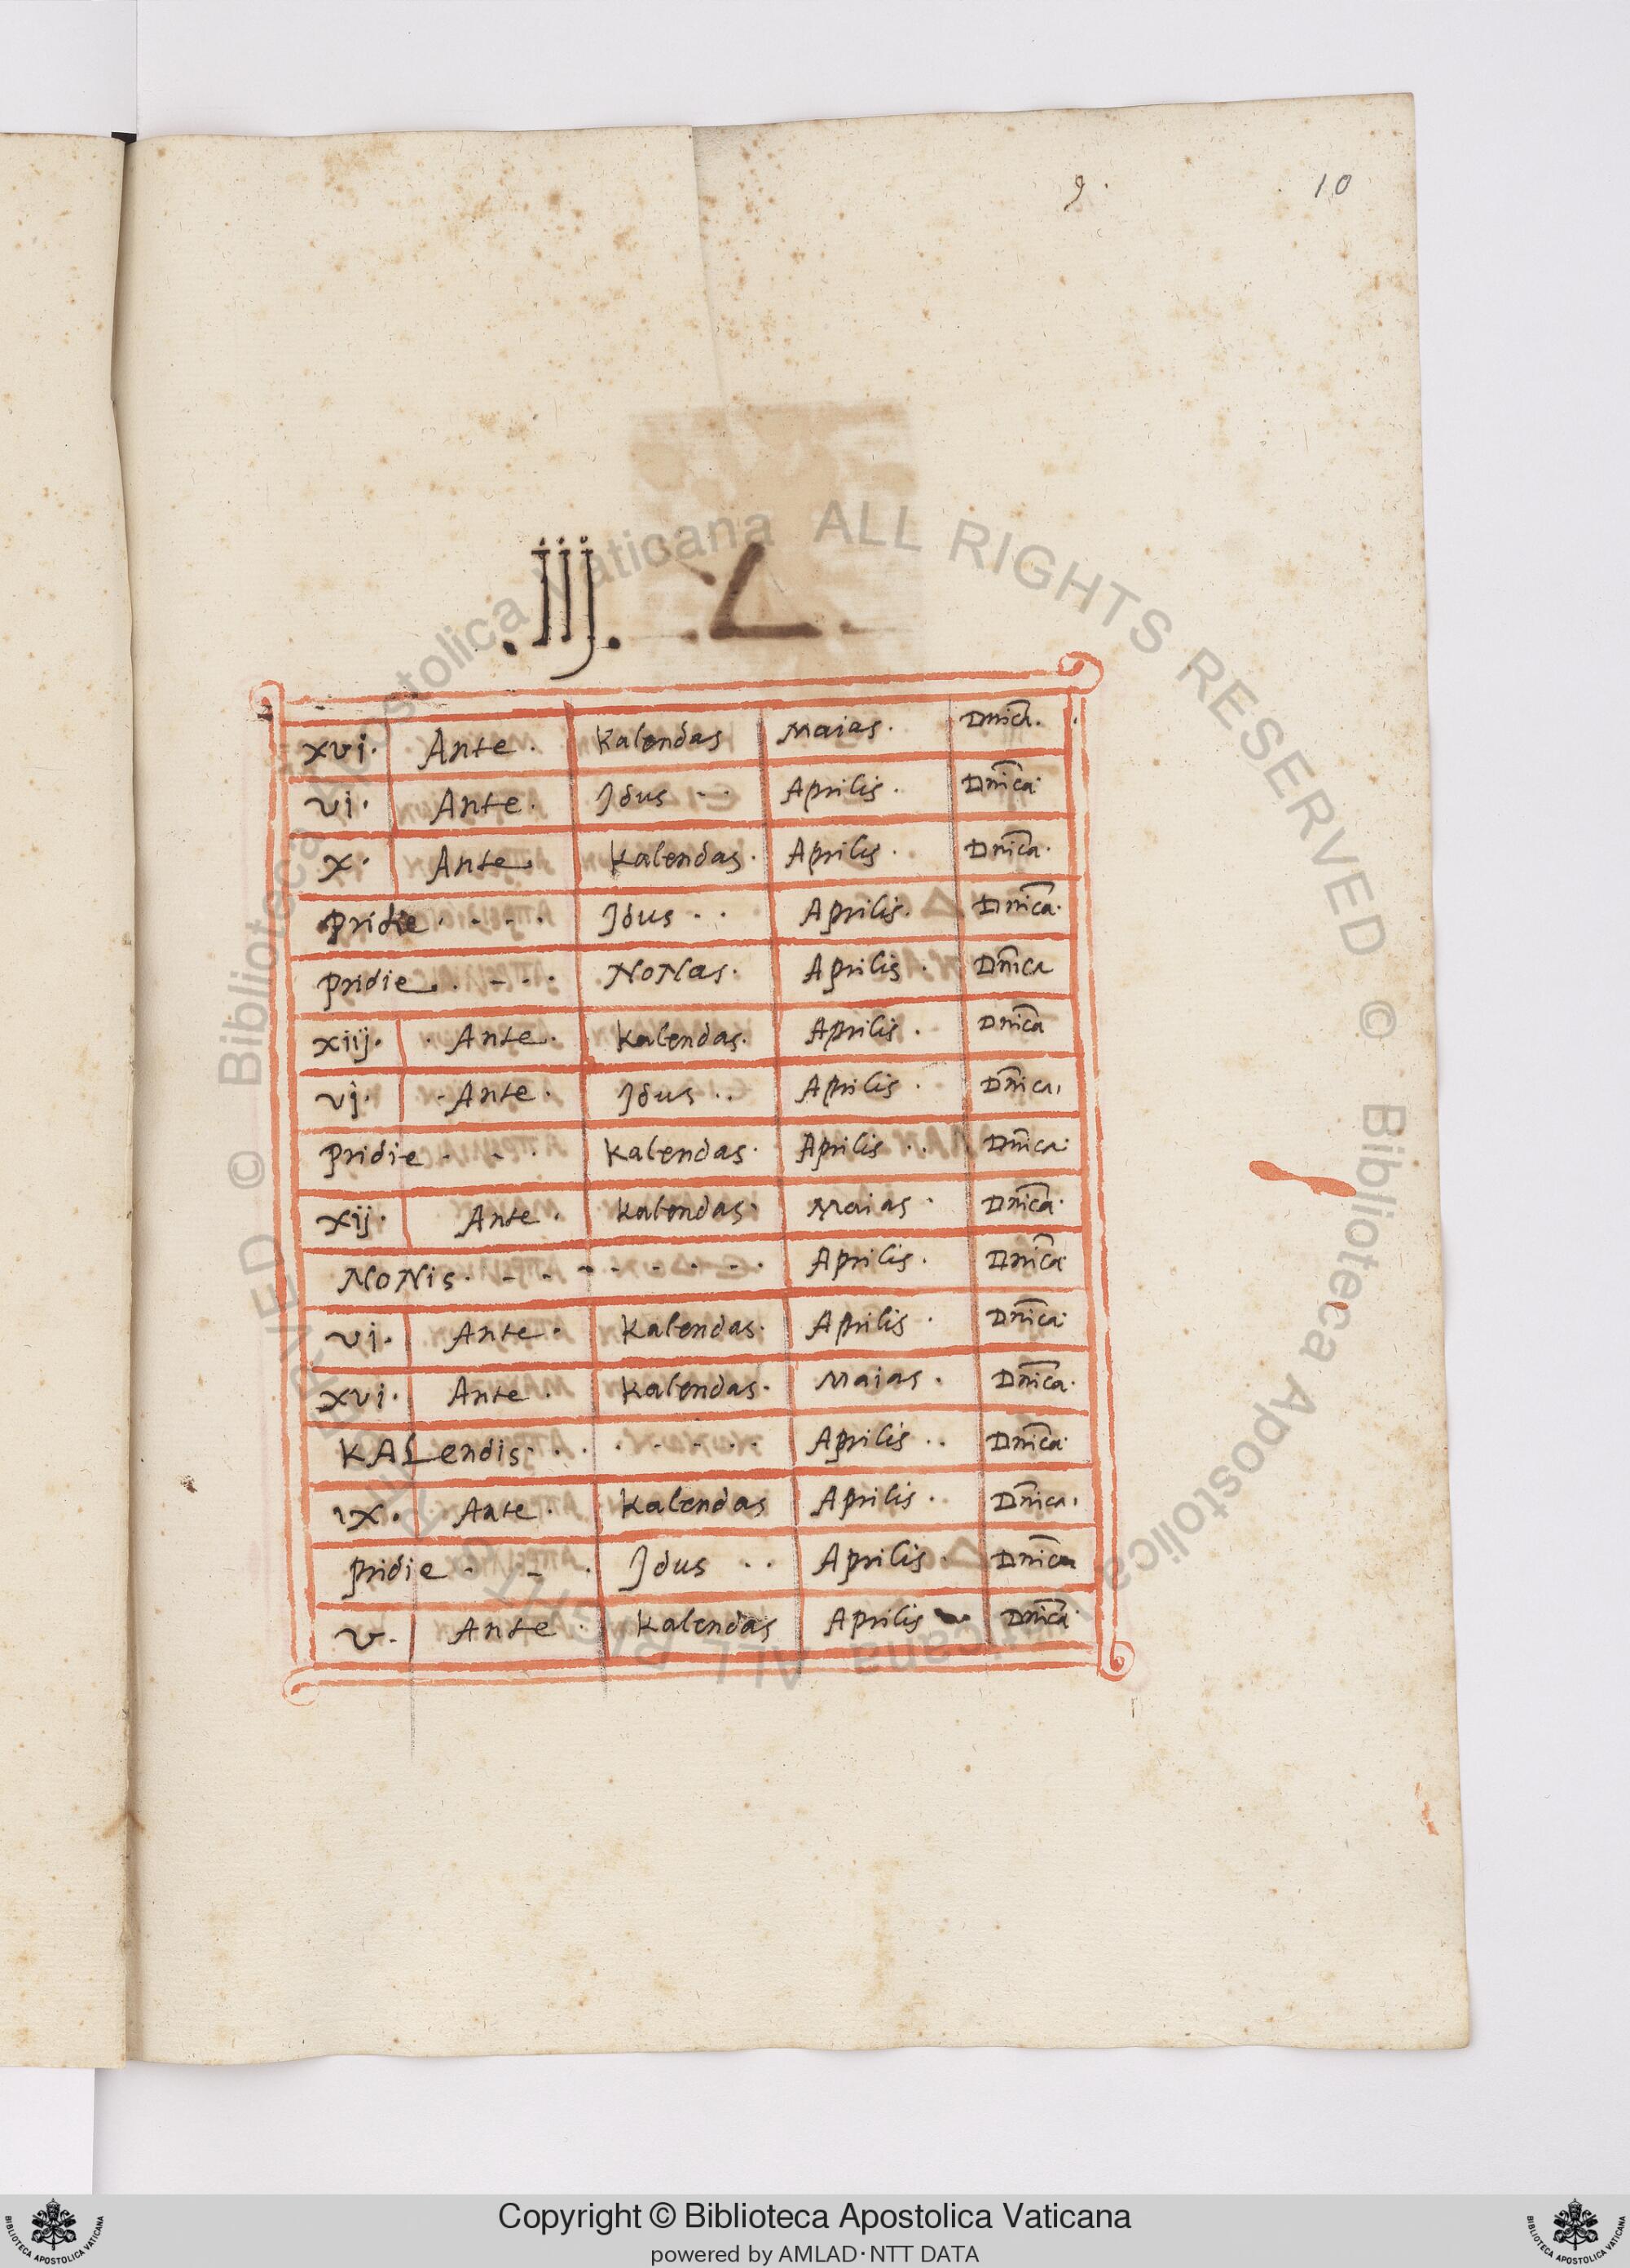 9. 10
.iij. L
xvi. Ante. Kalendas Maias. Dnica.
vi. Ante. Idus -- Aprilis. Dnica.
X. Ante. Kalendas. Aprilis. Dnica.
Pridie . - - . Idus .. Aprilis. Dnica.
Pridie . . - . . NoNas. Aprilis. Dnica
xiij. . Ante. Kalendas. Aprilis. Dnica
vj. . Ante. Idus .. Aprilis. Dnica.
Pridie . - . Kalendas. Aprilis .. Dnica.
xij. Ante. Kalendas. Maias. Dnica.
NoNis. - - - - - . - . Aprilis. Dnica
vi. Ante. Kalendas. Aprilis. Dnica.
xvi. Ante. Kalendas. Maias. Dnica.
KALendis. . . . . - . . . Aprilis .. Dnica.
ix. Ante. Kalendas Aprilis. Dnica.
Pridie . - . Idus .. Aprilis. Dnica
v. Ante. Kalendas Aprilis Dnica.
© Biblioteca Apostolica Vaticana ALL RIGHTS RESERVED © Biblioteca Apostolica Vaticana ALL RIGHTS RESERVED
Copyright © Biblioteca Apostolica Vaticana
powered by AMLAD·NTT DATA
BIBLIOTECA APOSTOLICA VATICANA
BIBLIOTECA APOSTOLICA VATICANA